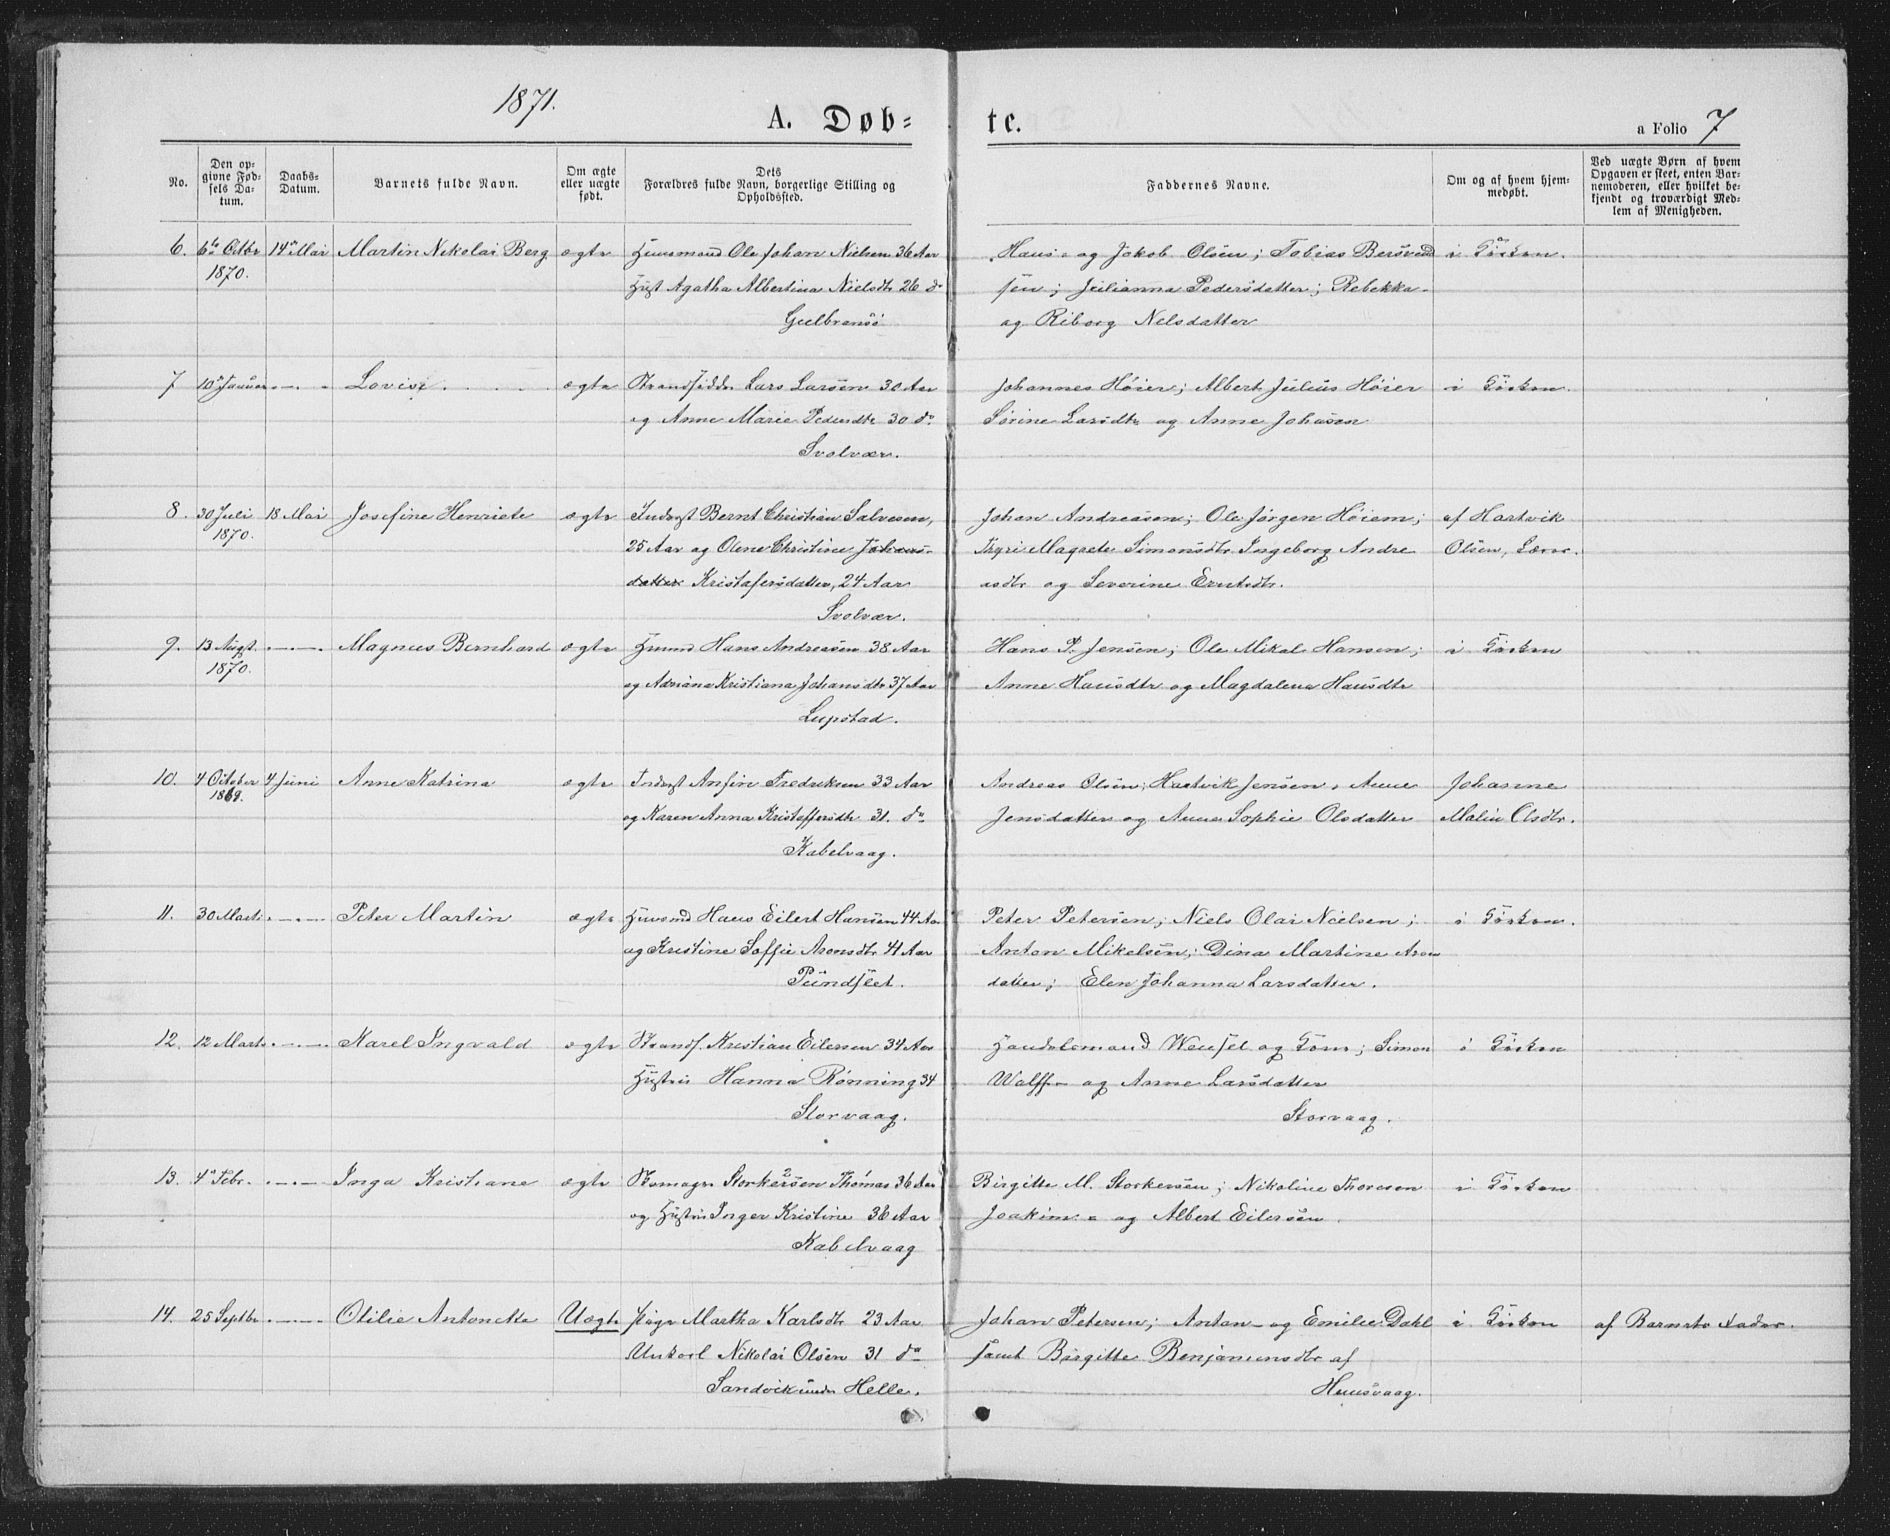 1871.
A. Døb=
te.
a Folio 7
No.
Den op=
givne Fød=
sels Da=
tum.
Daabs=
Datum.
Barnets fulde Navn.
Om ægte
eller uægte
født.
Dets
Forældres fulde Navn, borgerlige Stilling og
Opholdssted.
Faddernes Navne.
Om og af hvem hjem=
medøbt.
Ved uægte Børn af hvem
Opgaven er skeet, enten Bar=
nemoderen, eller hvilket be=
kjendt og troværdigt Med=
lem af Menigheden.
6. 6te Octbr 14de Mai Martin Nikolai Berg ægte Huusmand Ole Johan Nielsen 36 Aar Hans - og Jakob Olsen; Tobias Bersvend i Kirken.
1870. Hust Agatha Albertina Nielsdtr 26 do sen; Julianna Pedersdatter; Rebekka -
Gulbransö og Riborg Nelsdatter
7 10de Januar - - - Lovise ægte Strandsidder Lars Larsen 30 Aar Johannes Höier; Albert Julius Höier i Kirken.
og Anne Marie Pedersdtr 30 do Sörine Larsdtr og Anne Johnsen
Svolvær.
8. 30 Juli 18 Mai Josefine Henriete ægte Inderst Bernt Christian Salvesen, Johan Andreasen; Ole Jörgen Höiem; af Hartvik
1870. 25 Aar og Olene Christine Johans- Magrete Simonsdtr Ingeborg Andre Olsen, Lærer.
datter Kristofersdatter, 24 Aar asdtr og Severine Erntsdtr.
Svolvær.
9. 13 Augt. - - - Magnus Bernhard ægte Huusmd Hans Andreasen 38 Aar Hans P. Jensen; Ole Mikal Hansen; i Kirken
1870. og Adriana Kristiana Johansdtr 37 Aar Anne Hansdtr og Magdalena Hansdtr
Lupstad.
10. 4 October 4 Juni Anne Katrina ægte Inderst Anfin Fredriksen 33 Aar Andreas Olsen; Hartvik Jensen, Anne Johanne
1869. og Karen Anna Kristoffersdtr 31. do Jensdatter og Anne Sophie Olsdatter Malin Olsdtr.
Kabelvaag.
11. 30 Marts - - - Peter Martin ægte Huusmd Hans Eilert Hansen 44 Aar Peter Petersen; Niels Olai Nielsen; i Kirken.
og Kristine Soffie Aronsdtr 41 Aar Anton Mikelsen; Dina Martine Arons
Pundslet. datter; Elen Johanna Larsdatter.
12. 12 Marts - - - Karel Ingvald ægte Strands. Kristian Eilersen 34 Aar Handelsmand Wensel og Kone; Simon i Kirken
Hustru Hanna Rönning 34 Wolff - og Anne Larsdatter
Storvaag. Storvaag.
13. 4de Febr. - - - Inga Kristiane ægte Storkersen Thomas 36 Aar Birgitte M. Storkersen; Nikoline Thoresen i Kirken
og Hustru Inger Kristine 36 Aar Joakim - og Albert Eilersen.
Kabelvaag
14. 25 Septbr. - - - Otilie Antonette Uægte Pige Martha Karlsdtr 23 Aar Johan Petersen; Anton - og Emilie Dahl i Kirken af Barnets Fader.
Unkarl Nikolai Olsen 31 do samt Birgitte Benjaminsdtr af
Sandvik under Helle. Huusvaag.